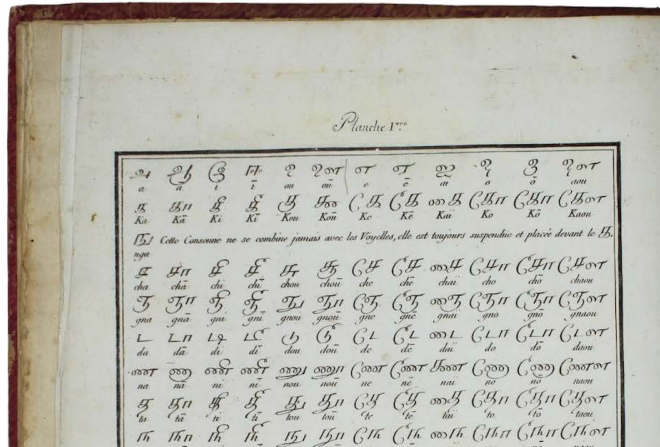 Planche I.ere
அ ஆ இ ஈ உ ஊ எ ஏ ஐ ஒ ஓ ஔ
a ā i ī ou oū e ē ai o ō aou
க கா கி கீ கு கூ கெ கே கை கொ கோ கௌ
Ka Kā Ki Kī Kou Koū Ke Kē Kai Ko Kō Kaou
ங Cette Consonne ne se combine jamais avec les Voyelles, elle est toujours suspendue et placée devant le க.
nga
ச சா சி சீ சு சூ செ சே சை சொ சோ சௌ
cha chā chi chī chou choū che chē chai cho chō chaou
ஞ ஞா ஞி ஞீ ஞு ஞூ ஞெ ஞே ஞை ஞொ ஞோ ஞௌ
gna gnā gni gnī gnou gnoū gne gnē gnai gno gnō gnaou
ட டா டி டீ டு டூ டெ டே டை டொ டோ டௌ
da dā di dī dou doū de dē dai do dō daou
ண ணா ணி ணீ ணு ணூ ணெ ணே ணை ணொ ணோ ணௌ
na nā ni nī nou noū ne nē nai no nō naou
த தா தி தீ து தூ தெ தே தை தொ தோ தௌ
ta tā ti tī tou toū te tē tai to tō taou
ந நா நி நீ நு நூ நெ நே நை நொ நோ நௌ